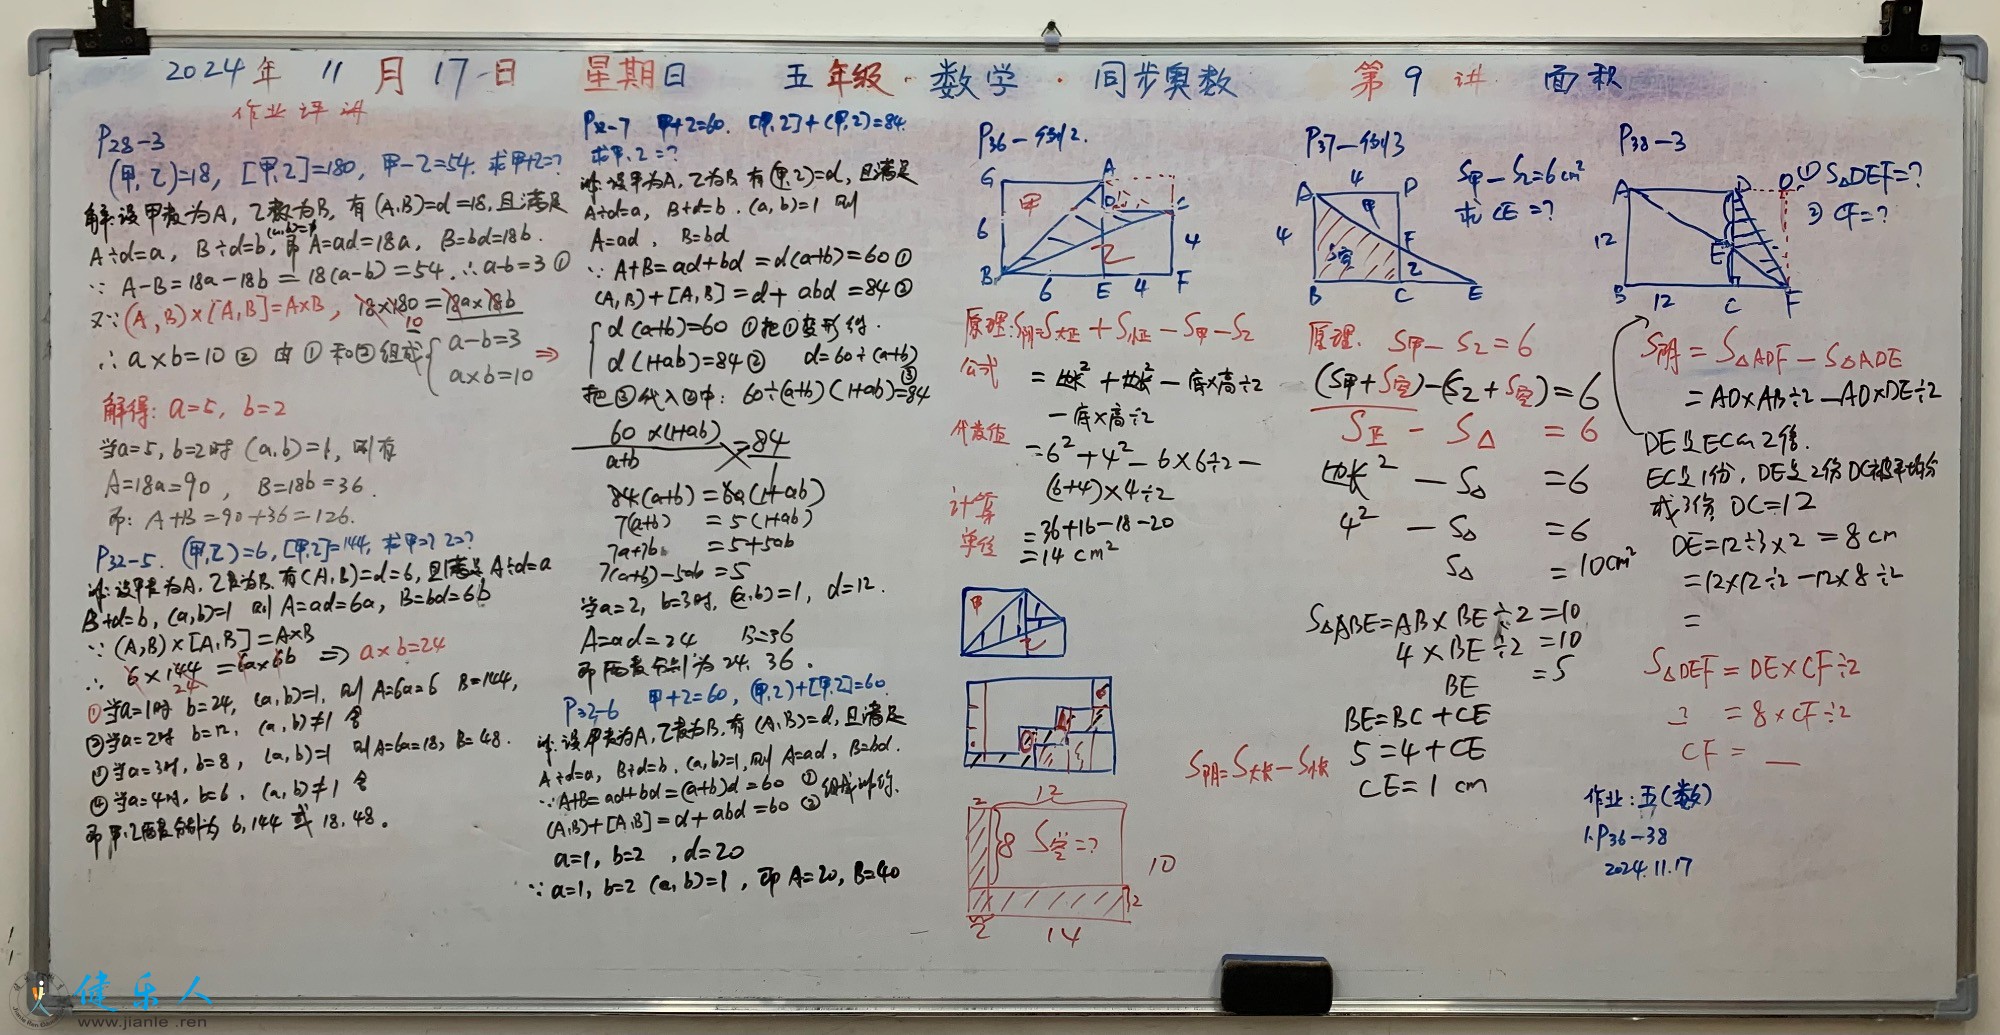 2024年 11月17日 星期日 五年级·数学·同步奥数 第9讲 面积
作业评讲
P28-3
(甲,乙)=18, [甲,乙]=180, 甲-乙=54. 求甲+乙=?
解:设甲数为A, 乙数为B, 有(A,B)=d=18,且满足
A÷d=a, B÷d=b, (a,b)=1 即 A=ad=18a, B=bd=18b.
∵ A-B=18a-18b=18(a-b)=54. ∴a-b=3 ①
又∵(A,B)×[A,B]=A×B, 18×180=18a×18b
10
∴ a×b=10 ② 由①和②组成{a-b=3 ⇒
a×b=10
解得: a=5, b=2
当a=5, b=2时 (a,b)=1, 则有
A=18a=90, B=18b=36.
即: A+B=90+36=126.
P32-5. (甲,乙)=6, [甲,乙]=144, 求甲=? 乙=?
解:设甲数为A, 乙数为B, 有(A,B)=d=6, 且满足A÷d=a
B÷d=b, (a,b)=1 则 A=ad=6a, B=bd=6b
∵ (A,B)×[A,B]=A×B
∴ 6×144=6a×6b ⇒ a×b=24
24
①当a=1时 b=24, (a,b)=1, 则A=6a=6 B=144,
②当a=2时 b=12, (a,b)≠1 舍
③当a=3时, b=8, (a,b)=1 则A=6a=18, B=48.
④当a=4时, b=6, (a,b)≠1 舍
即甲,乙两数分别为 6,144 或 18,48。
P32-7 甲+乙=60. [甲,乙]+(甲,乙)=84.
求甲,乙=?
解:设甲为A, 乙为B, 有(甲,乙)=d, 且满足
A÷d=a, B÷d=b. (a,b)=1 则
A=ad, B=bd
∵ A+B=ad+bd=d(a+b)=60 ①
(A,B)+[A,B]=d+abd=84 ②
{d(a+b)=60 ①把①变形得.
d(1+ab)=84 ② d=60÷(a+b) ③
把③代入②中: 60÷(a+b)(1+ab)=84
60×(1+ab)
a+b
=84
1
84(a+b)=60(1+ab)
7(a+b) =5(1+ab)
7a+7b =5+5ab
7(a+b)-5ab=5
当a=2, b=3时, (a,b)=1, d=12.
A=ad=24 B=36
即两数分别为24, 36.
P32-6 甲+乙=60, (甲,乙)+[甲,乙]=60.
解:设甲数为A, 乙数为B, 有(A,B)=d, 且满足
A÷d=a, B÷d=b, (a,b)=1, 则A=ad, B=bd.
∵A+B=ad+bd=(a+b)d=60 ①
(A,B)+[A,B]=d+abd=60 ②
a=1, b=2, d=20
∵a=1, b=2 (a,b)=1, 即A=20, B=40
P36-例2.
G A
甲
D C
6 4
乙
B 6 E 4 F
原理: S阴=S大正+S小正-S甲-S乙
公式 =边长²+边长²-底×高÷2
-底×高÷2
代数值 =6²+4²-6×6÷2-
(6+4)×4÷2
计算 =36+16-18-20
单位 =14cm²
甲
乙
S阴=S大长-S小长
2 12
8 S空=?
10
2
2 14
P37-例3
S甲-S乙=6cm²
求CE=?
A 4 D
甲
4 F
空 2
B C E
原理. S甲-S乙=6
(S甲+S空)-(S乙+S空)=6
S正-S△=6
边长²-S△=6
4²-S△=6
S△=10cm²
S△ABE=AB×BE÷2=10
4×BE÷2=10
BE =5
BE=BC+CE
5=4+CE
CE=1 cm
P38-3
① S△DEF=?
② CF=?
A D
12 E
B 12 C F
S阴=S△ADF-S△ADE
=AD×AB÷2-AD×DE÷2
DE是EC的2倍.
EC是1份, DE是2份 DC被平均分
成3份, DC=12
DE=12÷3×2=8cm
=12×12÷2-12×8÷2
=
S△DEF=DE×CF÷2
=8×CF÷2
CF=
作业:五(数)
1.P36-38
2024.11.17
健乐人
www.jianle.ren